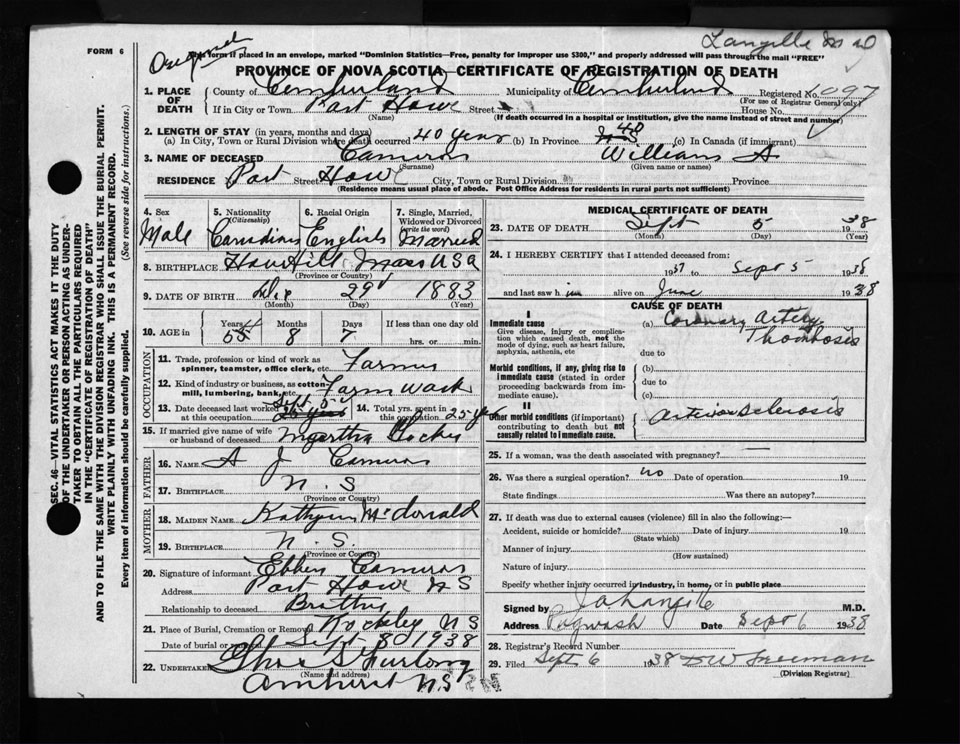 FORM 6
This form if placed in an envelope, marked "Dominion Statistics—Free, penalty for improper use $300," and properly addressed will pass through the mail "FREE"
Langille M D
PROVINCE OF NOVA SCOTIA, CERTIFICATE OF REGISTRATION OF DEATH
1. PLACE OF DEATH County of Cumberland Municipality of Cumberland Registered No.
(For use of Registrar General only)
If in City or Town Port Howe Street House No.
(Name) (If death occurred in a hospital or institution, give the name instead of street and number)
2. LENGTH OF STAY (in years, months and days)
(a) In City, Town or Rural Division where death occurred 40 years (b) In Province 40 (c) In Canada (if immigrant)
3. NAME OF DECEASED Cameron William A
(Surname) (Given name or names)
RESIDENCE Port Street Howe City, Town or Rural Division Province
(Residence means usual place of abode. Post Office Address for residents in rural parts not sufficient)
SEC. 46—VITAL STATISTICS ACT MAKES IT THE DUTY
OF THE UNDERTAKER OR PERSON ACTING AS UNDER-
TAKER TO OBTAIN ALL THE PARTICULARS REQUIRED
IN THE "CERTIFICATE OF REGISTRATION OF DEATH"
AND TO FILE THE SAME WITH THE DIVISION REGISTRAR WHO SHALL ISSUE THE BURIAL PERMIT.
WRITE PLAINLY WITH UNFADING INK. THIS IS A PERMANENT RECORD.
Every item of information should be carefully supplied. (See reverse side for instructions.)
4. Sex 5. Nationality (Citizenship) 6. Racial Origin 7. Single, Married, Widowed or Divorced (write the word)
Male Canadian English Married
8. BIRTHPLACE Mass USA
(Province or Country)
9. DATE OF BIRTH 29 1883
(Month) (Day) (Year)
10. AGE in Years Months Days If less than one day old
8 7 hrs. or min.
OCCUPATION
11. Trade, profession or kind of work as spinner, teamster, office clerk, etc. Farmer
12. Kind of industry or business, as cotton-mill, lumbering, bank, etc. Farm work
13. Date deceased last worked at this occupation Sept 5 14. Total yrs. spent in this occupation 25 years
15. If married give name of wife or husband of deceased Martha
FATHER
16. NAME A J Cameron
17. BIRTHPLACE N. S
(Province or Country)
MOTHER
18. MAIDEN NAME McDonald
19. BIRTHPLACE N. S.
(Province or Country)
20. Signature of informant Cameron
Address Port Howe N S
Relationship to deceased Brother
21. Place of Burial, Cremation or Removal Rockley N S
Date of burial or removal Sept 8 1938
22. UNDERTAKER Furlong
(Name and address)
Amherst N.S
MEDICAL CERTIFICATE OF DEATH
23. DATE OF DEATH Sept 5 1938
(Month) (Day) (Year)
24. I HEREBY CERTIFY that I attended deceased from:
1937 to Sept 5 1938
and last saw him alive on June 1938
CAUSE OF DEATH
I
Immediate cause (a) Coronary Artery Thombosis
Give disease, injury or complication which caused death, not the mode of dying, such as heart failure, asphyxia, asthenia, etc
due to
Morbid conditions, if any, giving rise to immediate cause (stated in order proceeding backwards from immediate cause). (b)
due to
(c)
II
Other morbid conditions (if important) contributing to death but not causally related to immediate cause. Arteriosclerosis
25. If a woman, was the death associated with pregnancy?
26. Was there a surgical operation? no Date of operation 19
State findings Was there an autopsy?
27. If death was due to external causes (violence) fill in also the following:—
Accident, suicide or homicide? Date of injury 19
(State which)
Manner of injury
(How sustained)
Nature of injury
Specify whether injury occurred in industry, in home, or in public place
Signed by J A Langille M.D.
Address Pugwash Date Sept 6 1938
28. Registrar's Record Number
29. Filed Sept 6 1938 D W Freeman
(Division Registrar)